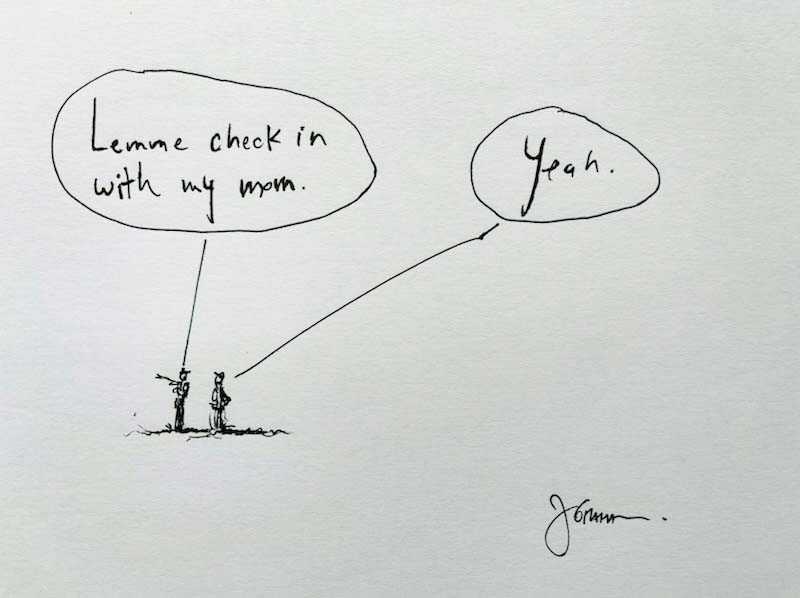 Lemme check in
with my mom.
Yeah.